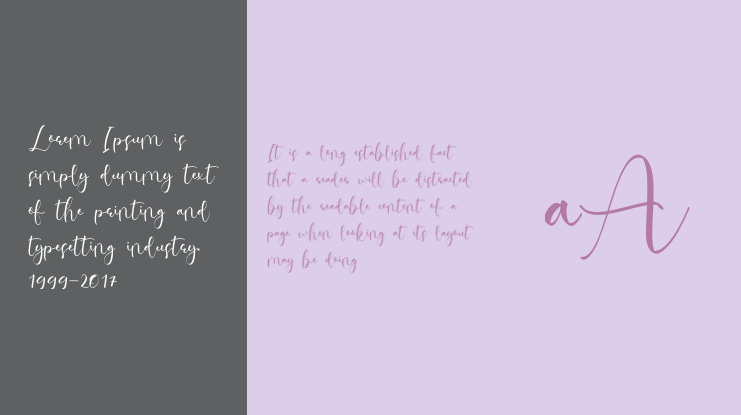 Lorem Ipsum is
simply dummy text
of the printing and
typesetting industry.
1999-2017
It is a long established fact
that a reader will be distracted
by the readable content of a
page when looking at its layout
may be doing
aA